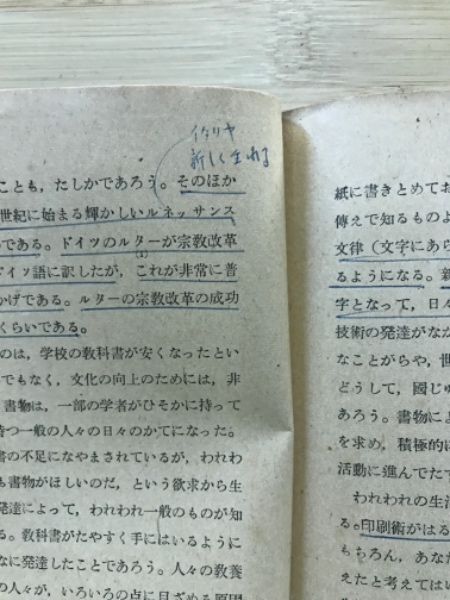 イタリヤ
新しく生れる
ことも，たしかであろう。そのほか
世紀に始まる輝かしいルネッサンス
である。ドイツのルターが宗教改革
ドイツ語に訳したが，これが非常に普
(1)
かげである。ルターの宗教改革の成功
くらいである。
のは，学校の教科書が安くなったとい
でもなく，文化の向上のためには，非
書物は，一部の学者がひそかに持って
待つ一般の人々の日々のかてになった。
書の不足になやまされているが，われわ
も書物がほしいのだ，という欲求から生
発達によって，われわれ一般のものが知
る。教科書がたやすく手にはいるように
なに発達したことであろう。人々の教養
の人々が，いろいろの点に目ざめる原因
紙に書きとめてお
傳えで知るものよ
文律（文字にあら
るようになる。新
字となって，日々
技術の発達がなか
なことがらや，世
どうして，國じゅ
あろう。書物によ
を求め，積極的に
活動に進んでたず
われわれの生活
る。印刷術がはる
もちろん，あなた
えたと考えてはい